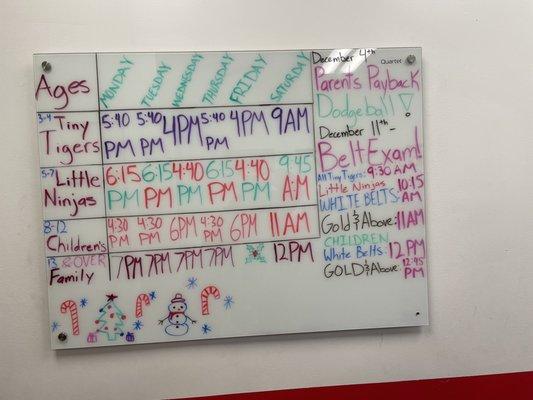 Ages MONDAY TUESDAY WEDNESDAY THURSDAY FRIDAY SATURDAY
3-4 Tiny Tigers 5:40 PM 5:40 PM 4PM 5:40 PM 4PM 9AM
5-7 Little Ninjas 6:15 PM 6:15 PM 4:40 PM 6:15 PM 4:40 PM 9:45 A.M
8-12 Children's 4:30 PM 4:30 PM 6PM 4:30 PM 6PM 11AM
13 & OVER Family 7PM 7PM 7PM 7PM 12PM
December 4th
Quartet
Parents Payback
Dodgeball!
December 11th -
Belt Exam!
All Tiny Tigers: 9:30 AM
Little Ninjas
WHITE BELTS: 10:15 AM
Gold & Above: 11AM
CHILDREN
White Belts: 12PM
GOLD & Above: 12:45 PM